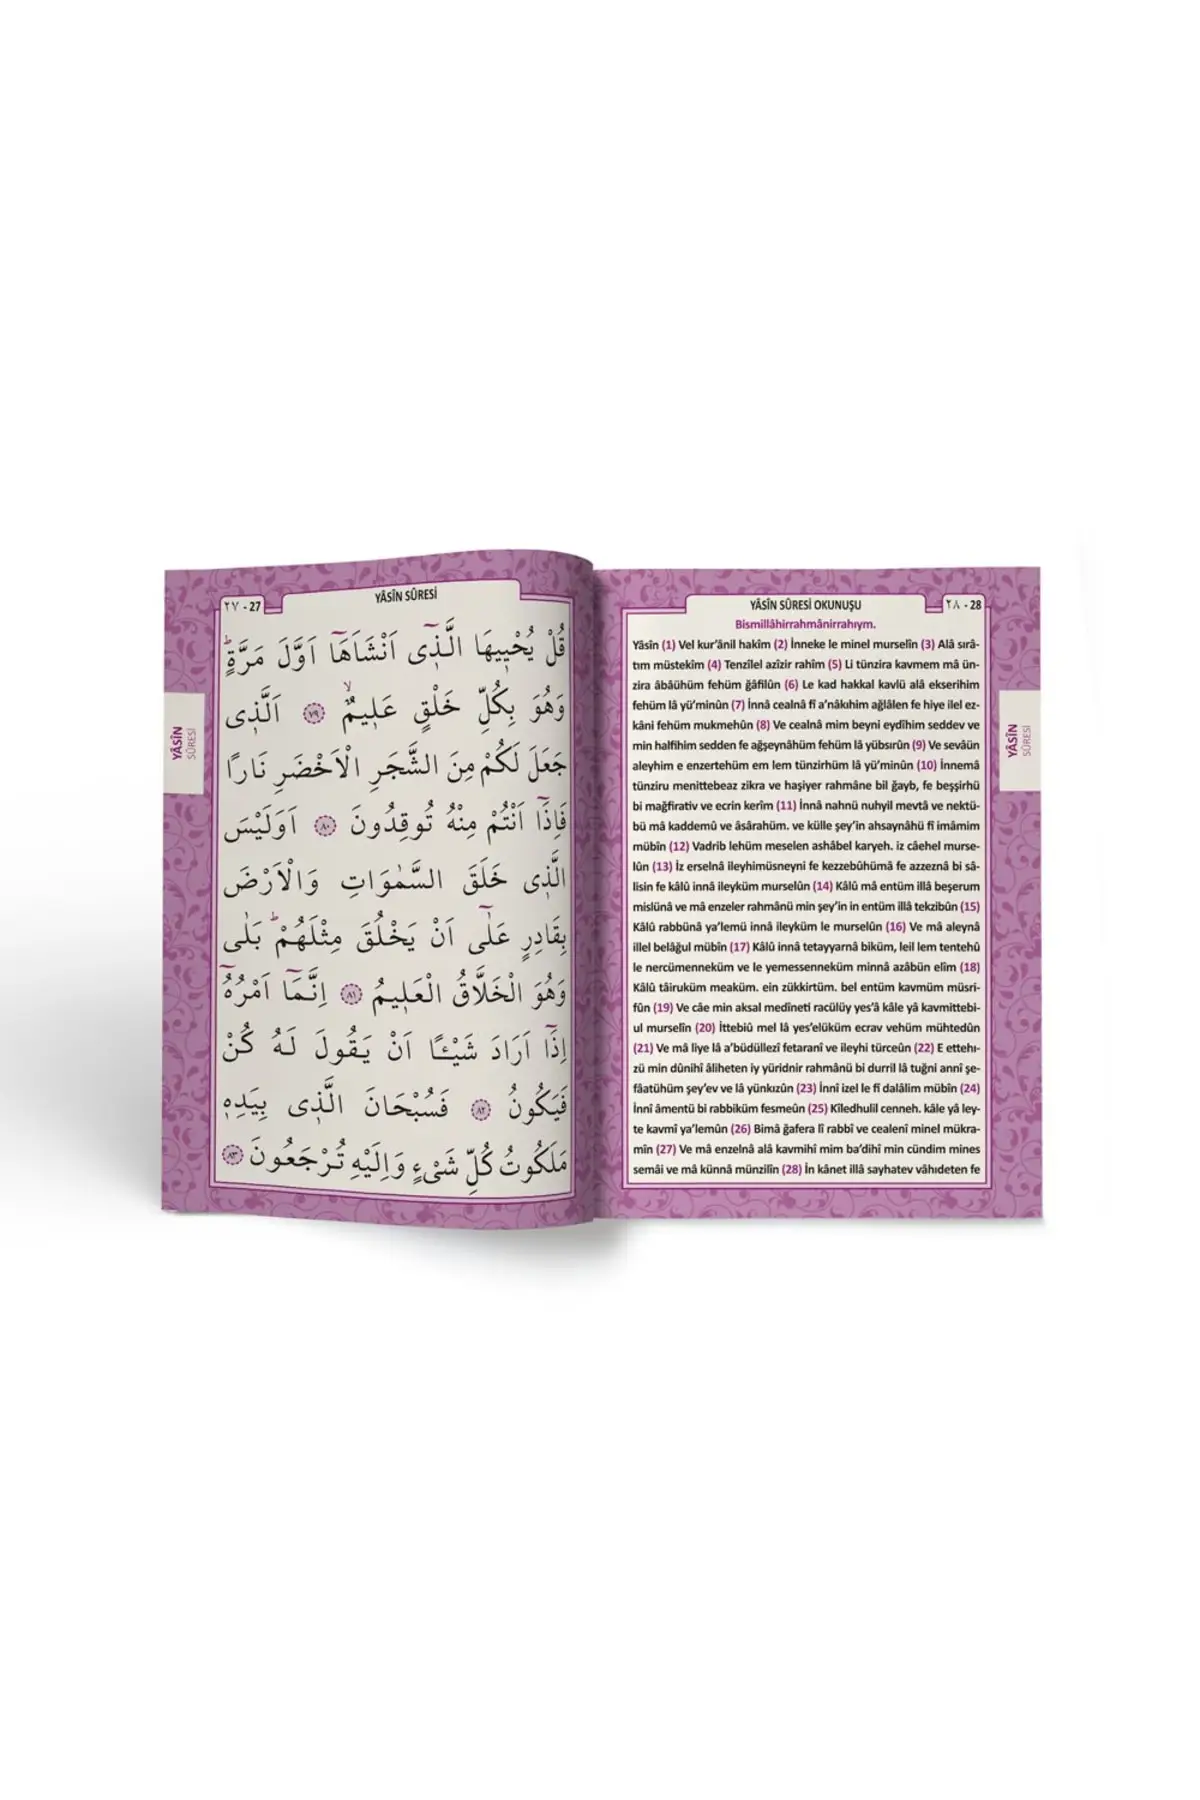 ٢٧ - 27
YÂSÎN SÛRESİ
قُلْ يُحْيٖيهَا الَّذٖٓى اَنْشَاَهَٓا اَوَّلَ مَرَّةٍؕ
وَهُوَ بِكُلِّ خَلْقٍ عَلٖيمٌۙ ﴿٧٩﴾ اَلَّذٖى
جَعَلَ لَكُمْ مِنَ الشَّجَرِ الْاَخْضَرِ نَارًا
فَاِذَٓا اَنْتُمْ مِنْهُ تُوقِدُونَ ﴿٨٠﴾ اَوَلَيْسَ
الَّذٖى خَلَقَ السَّمٰوَاتِ وَالْاَرْضَ
بِقَادِرٍ عَلٰٓى اَنْ يَخْلُقَ مِثْلَهُمْؕ بَلٰى
وَهُوَ الْخَلَّاقُ الْعَلٖيمُ ﴿٨١﴾ اِنَّمَٓا اَمْرُهُٓ
اِذَٓا اَرَادَ شَيْـًٔا اَنْ يَقُولَ لَهُ كُنْ
فَيَكُونُ ﴿٨٢﴾ فَسُبْحَانَ الَّذٖى بِيَدِهٖ
مَلَكُوتُ كُلِّ شَىْءٍ وَاِلَيْهِ تُرْجَعُونَ ﴿٨٣﴾
YÂSÎN
SÛRESİ
YÂSÎN SÛRESİ OKUNUŞU
٢٨ - 28
Bismillâhirrahmânirrahıym.
Yâsîn (1) Vel kur’ânil hakîm (2) İnneke le minel murselîn (3) Alâ sırâ-
tım müstekîm (4) Tenzîlel azîzir rahîm (5) Li tünzira kavmem mâ ün-
zira âbâühüm fehüm ğâfilûn (6) Le kad hakkal kavlü alâ ekserihim
fehüm lâ yü’minûn (7) İnnâ cealnâ fî a’nâkıhim ağlâlen fe hiye ilel ez-
kâni fehüm mukmehûn (8) Ve cealnâ mim beyni eydîhim seddev ve
min halfihim sedden fe ağşeynâhüm fehüm lâ yübsırûn (9) Ve sevâün
aleyhim e enzertehüm em lem tünzirhüm lâ yü’minûn (10) İnnemâ
tünziru menittebeaz zikra ve haşiyer rahmâne bil ğayb, fe beşşirhü
bi mağfirativ ve ecrin kerîm (11) İnnâ nahnü nuhyil mevtâ ve nektü-
bü mâ kaddemû ve âsârahüm. ve külle şey’in ahsaynâhü fî imâmim
mübîn (12) Vadrib lehüm meselen ashâbel karyeh. iz câehel murse-
lûn (13) İz erselnâ ileyhimüsneyni fe kezzebûhümâ fe azzeznâ bi sâ-
lisin fe kâlû innâ ileyküm murselûn (14) Kâlû mâ entüm illâ beşerum
mislünâ ve mâ enzeler rahmânü min şey’in in entüm illâ tekzibûn (15)
Kâlû rabbünâ ya’lemü innâ ileyküm le murselûn (16) Ve mâ aleynâ
illel belâğul mübîn (17) Kâlû innâ tetayyarnâ biküm, leil lem tentehû
le nercümenneküm ve le yemessenneküm minnâ azâbün elîm (18)
Kâlû tâiruküm meaküm. ein zükkirtüm. bel entüm kavmüm müsri-
fûn (19) Ve câe min aksal medîneti racülüy yes’â kâle yâ kavmittebi-
ul murselîn (20) İttebiû mel lâ yes’elüküm ecrav vehüm mühtedûn
(21) Ve mâ liye lâ a’büdüllezî fetaranî ve ileyhi türceûn (22) E ettehı-
zü min dûnihî âliheten iy yüridnir rahmânü bi durril lâ tuğni annî şe-
fâatühüm şey’ev ve lâ yünkızûn (23) İnnî izel le fî dalâlim mübîn (24)
İnnî âmentü bi rabbiküm fesmeûn (25) Kîledhulil cenneh. kâle yâ ley-
te kavmî ya’lemûn (26) Bimâ ğafera lî rabbî ve cealenî minel mükra-
mîn (27) Ve mâ enzelnâ alâ kavmihî mim ba’dihî min cündim mines
semâi ve mâ künnâ münzilîn (28) İn kânet illâ sayhatev vâhıdeten fe
YÂSÎN
SÛRESİ